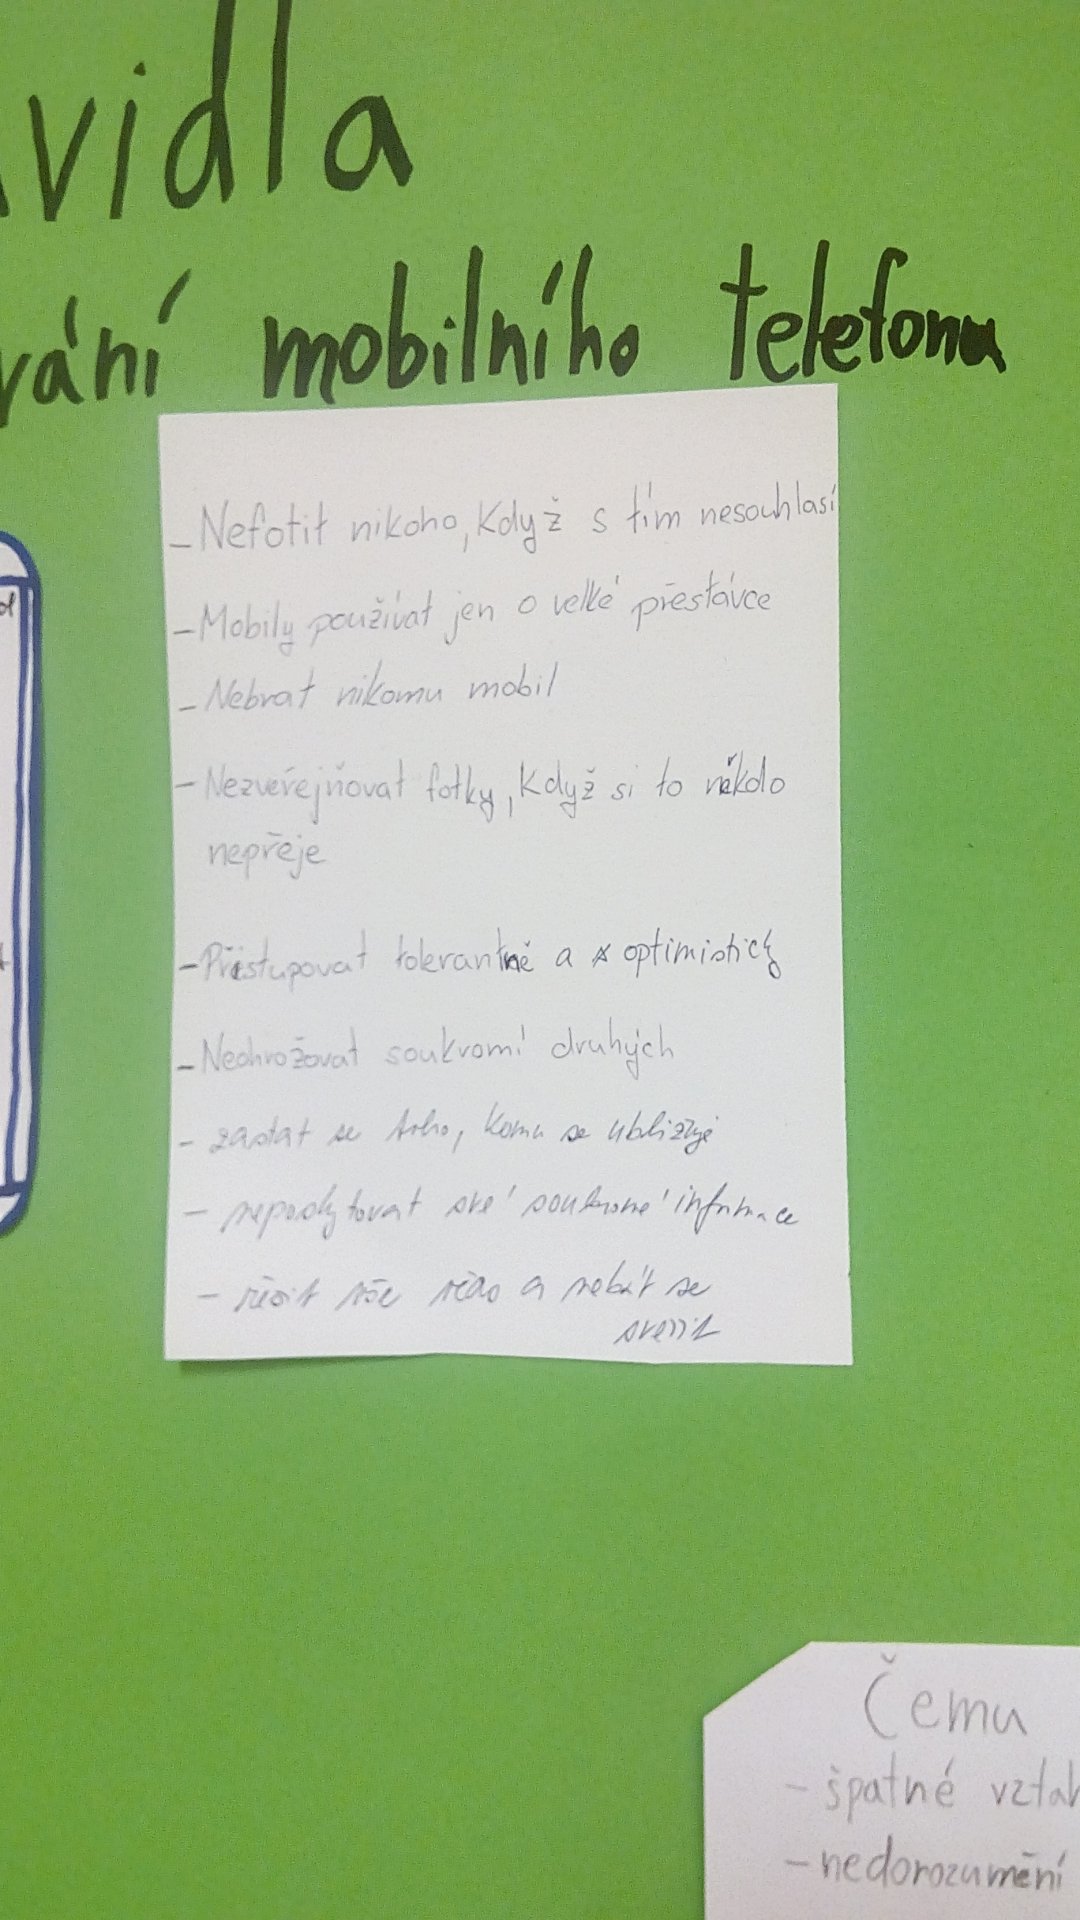 vidla
vání mobilního telefonu
- Nefotit nikoho, Když s tím nesouhlasí
- Mobily používat jen o velké přestávce
- Nebrat nikomu mobil
- Nezveřejňovat fotky, Když si to někdo
nepřeje
- Přistupovat tolerantně a optimisticky
- Neohrožovat soukromí druhých
- zastat se toho, komu se ubližuje
- neposkytovat své soukromé informace
- řešit vše včas a nebát se
svěřit
Čemu
- špatné vztah
- nedorozumění